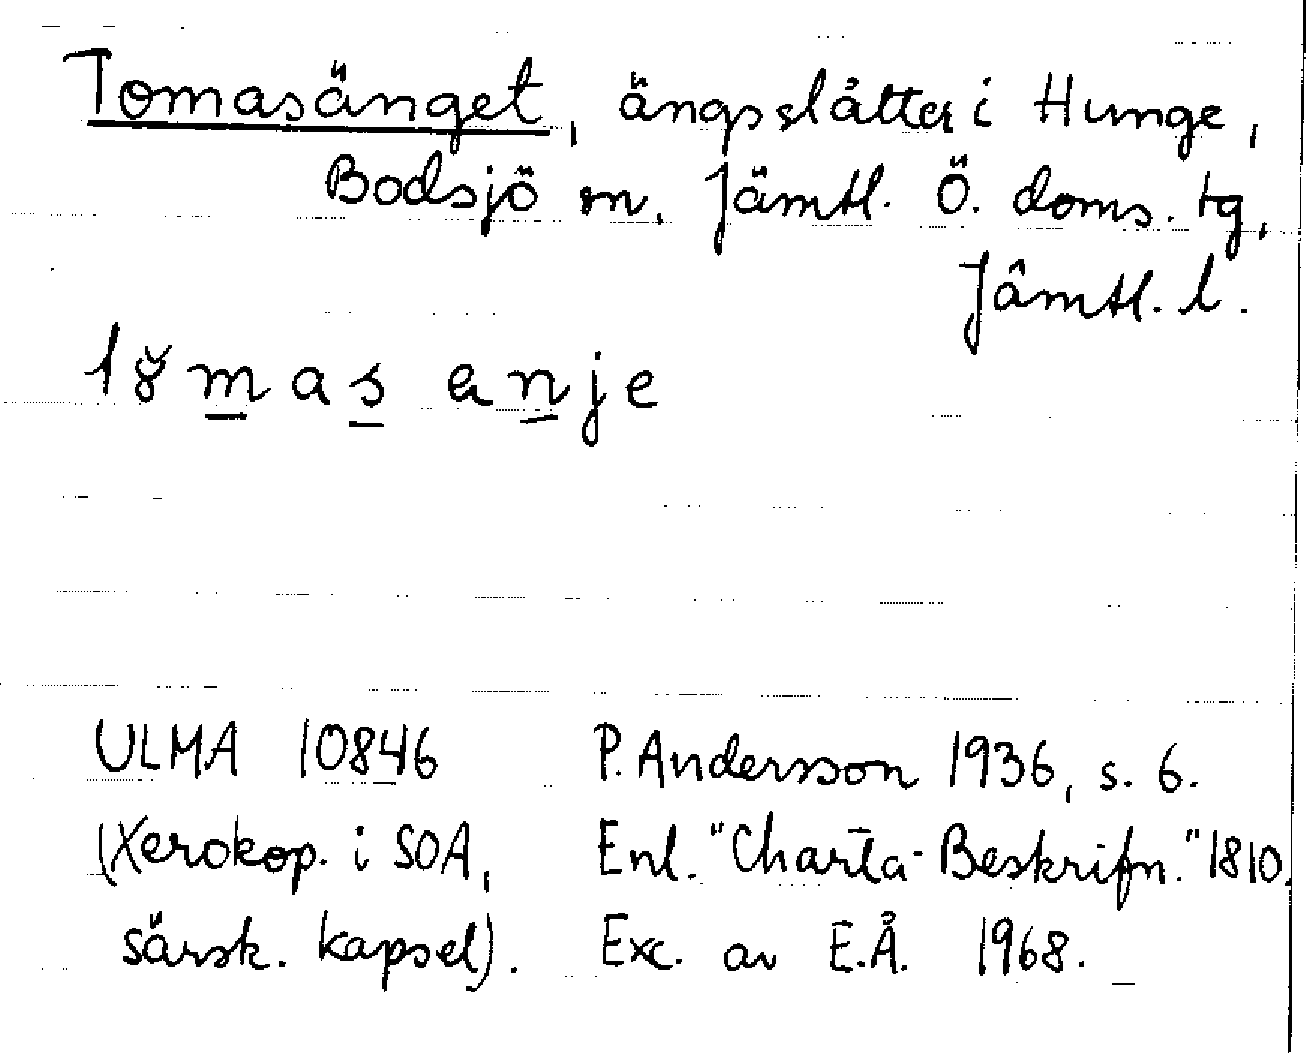 Tomasänget, ängsslåtter i Hunge,
Bodsjö sn. Jämtl. Ö. doms. tg,
Jämtl. l.
mas anje
ULMA 10846 P. Andersson 1936, s. 6.
(Xerokop. i SOA, Enl. "Charta-Beskrifn." 1810.
särsk. kapsel). Exc. av E.Å. 1968.